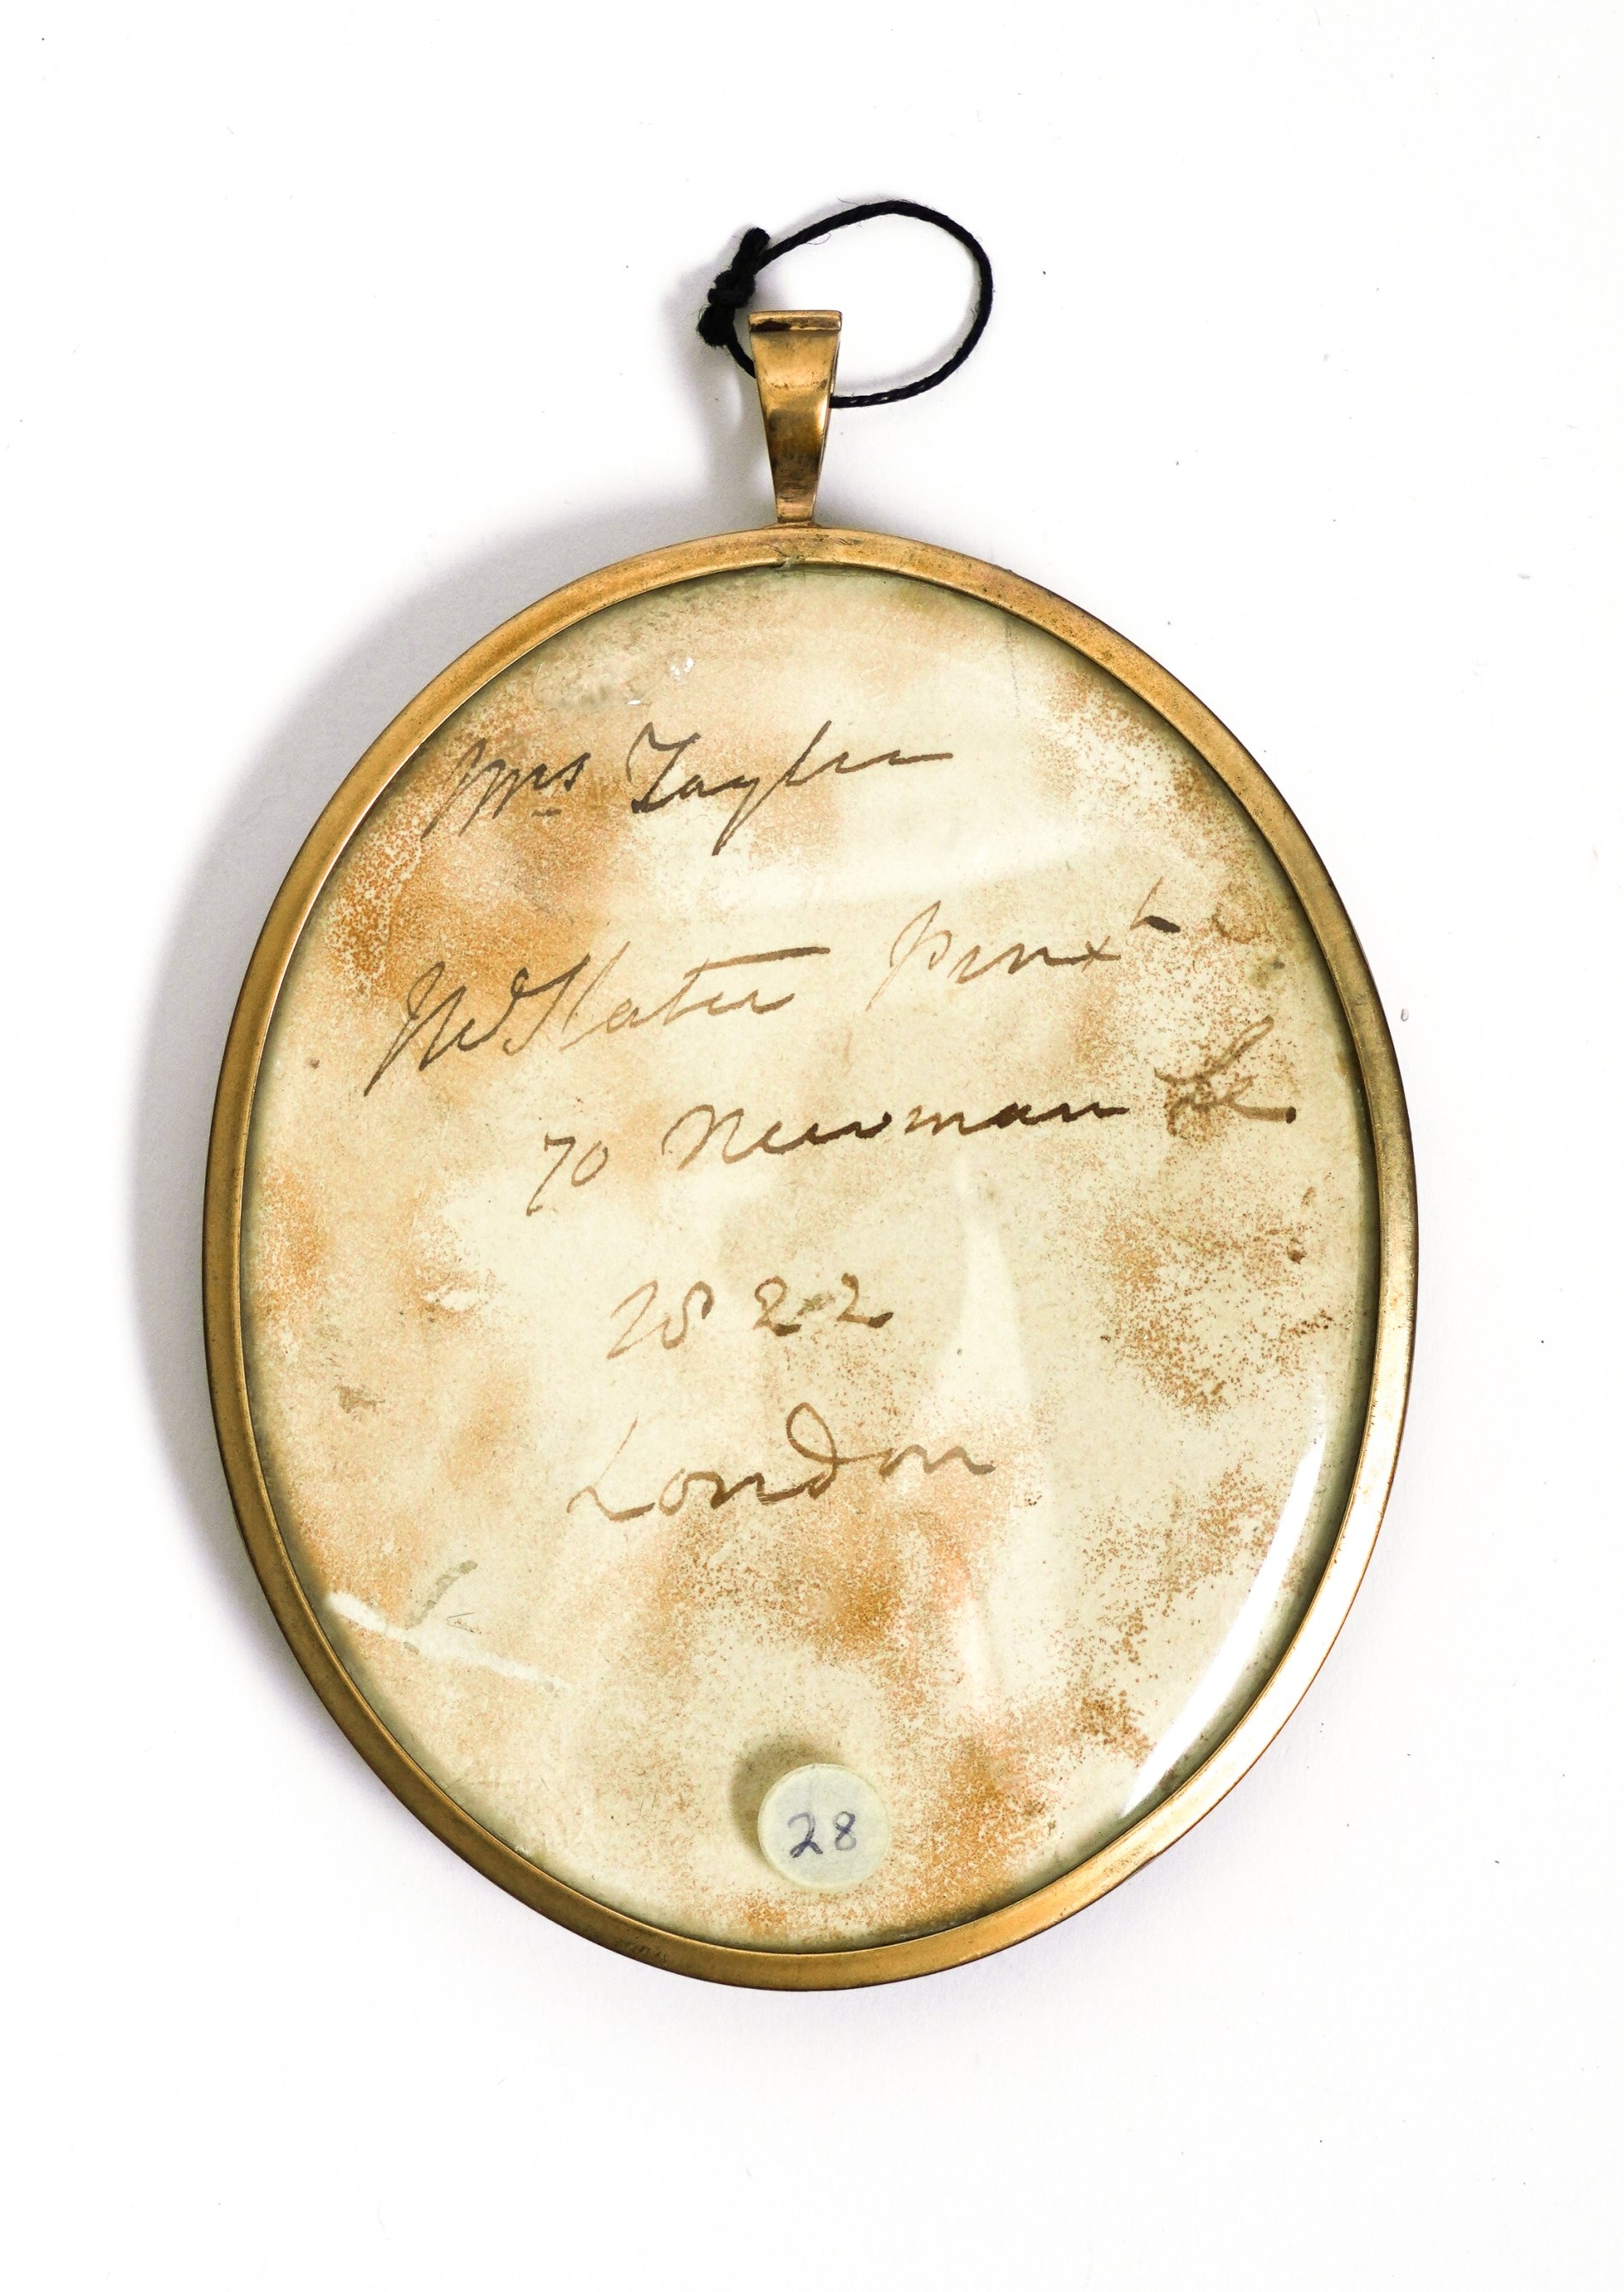 Mrs Tayler
JW Slater pinxt
70 Newman St.
1822
London
28